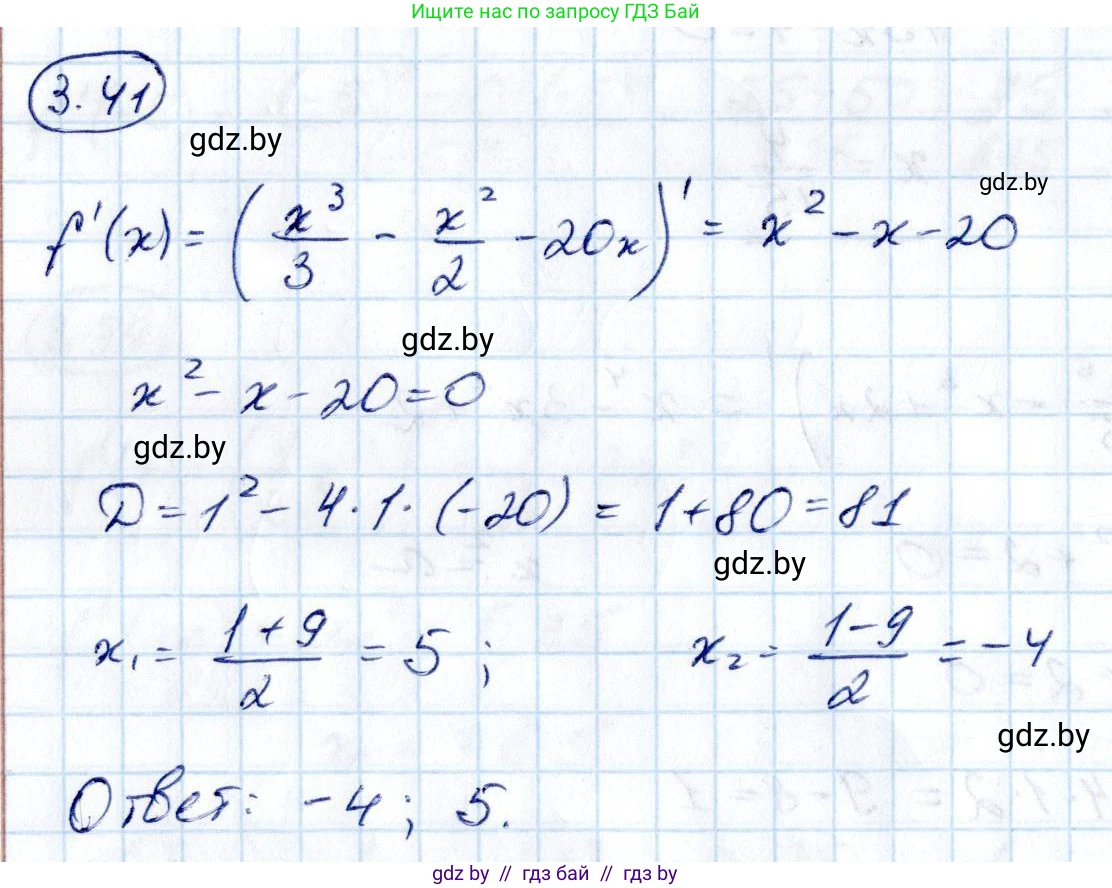 Ищите нас по запросу ГДЗ Бай
3.41
gdz.by
gdz.by
f'(x) = (x³/3 - x²/2 - 20x)' = x² - x - 20
gdz.by
x² - x - 20 = 0
gdz.by
D = 1² - 4·1·(-20) = 1+80 = 81
gdz.by
x₁ = (1+9)/2 = 5; x₂ = (1-9)/2 = -4
gdz.by
Ответ: -4; 5.
gdz.by // гдз бай // гдз by